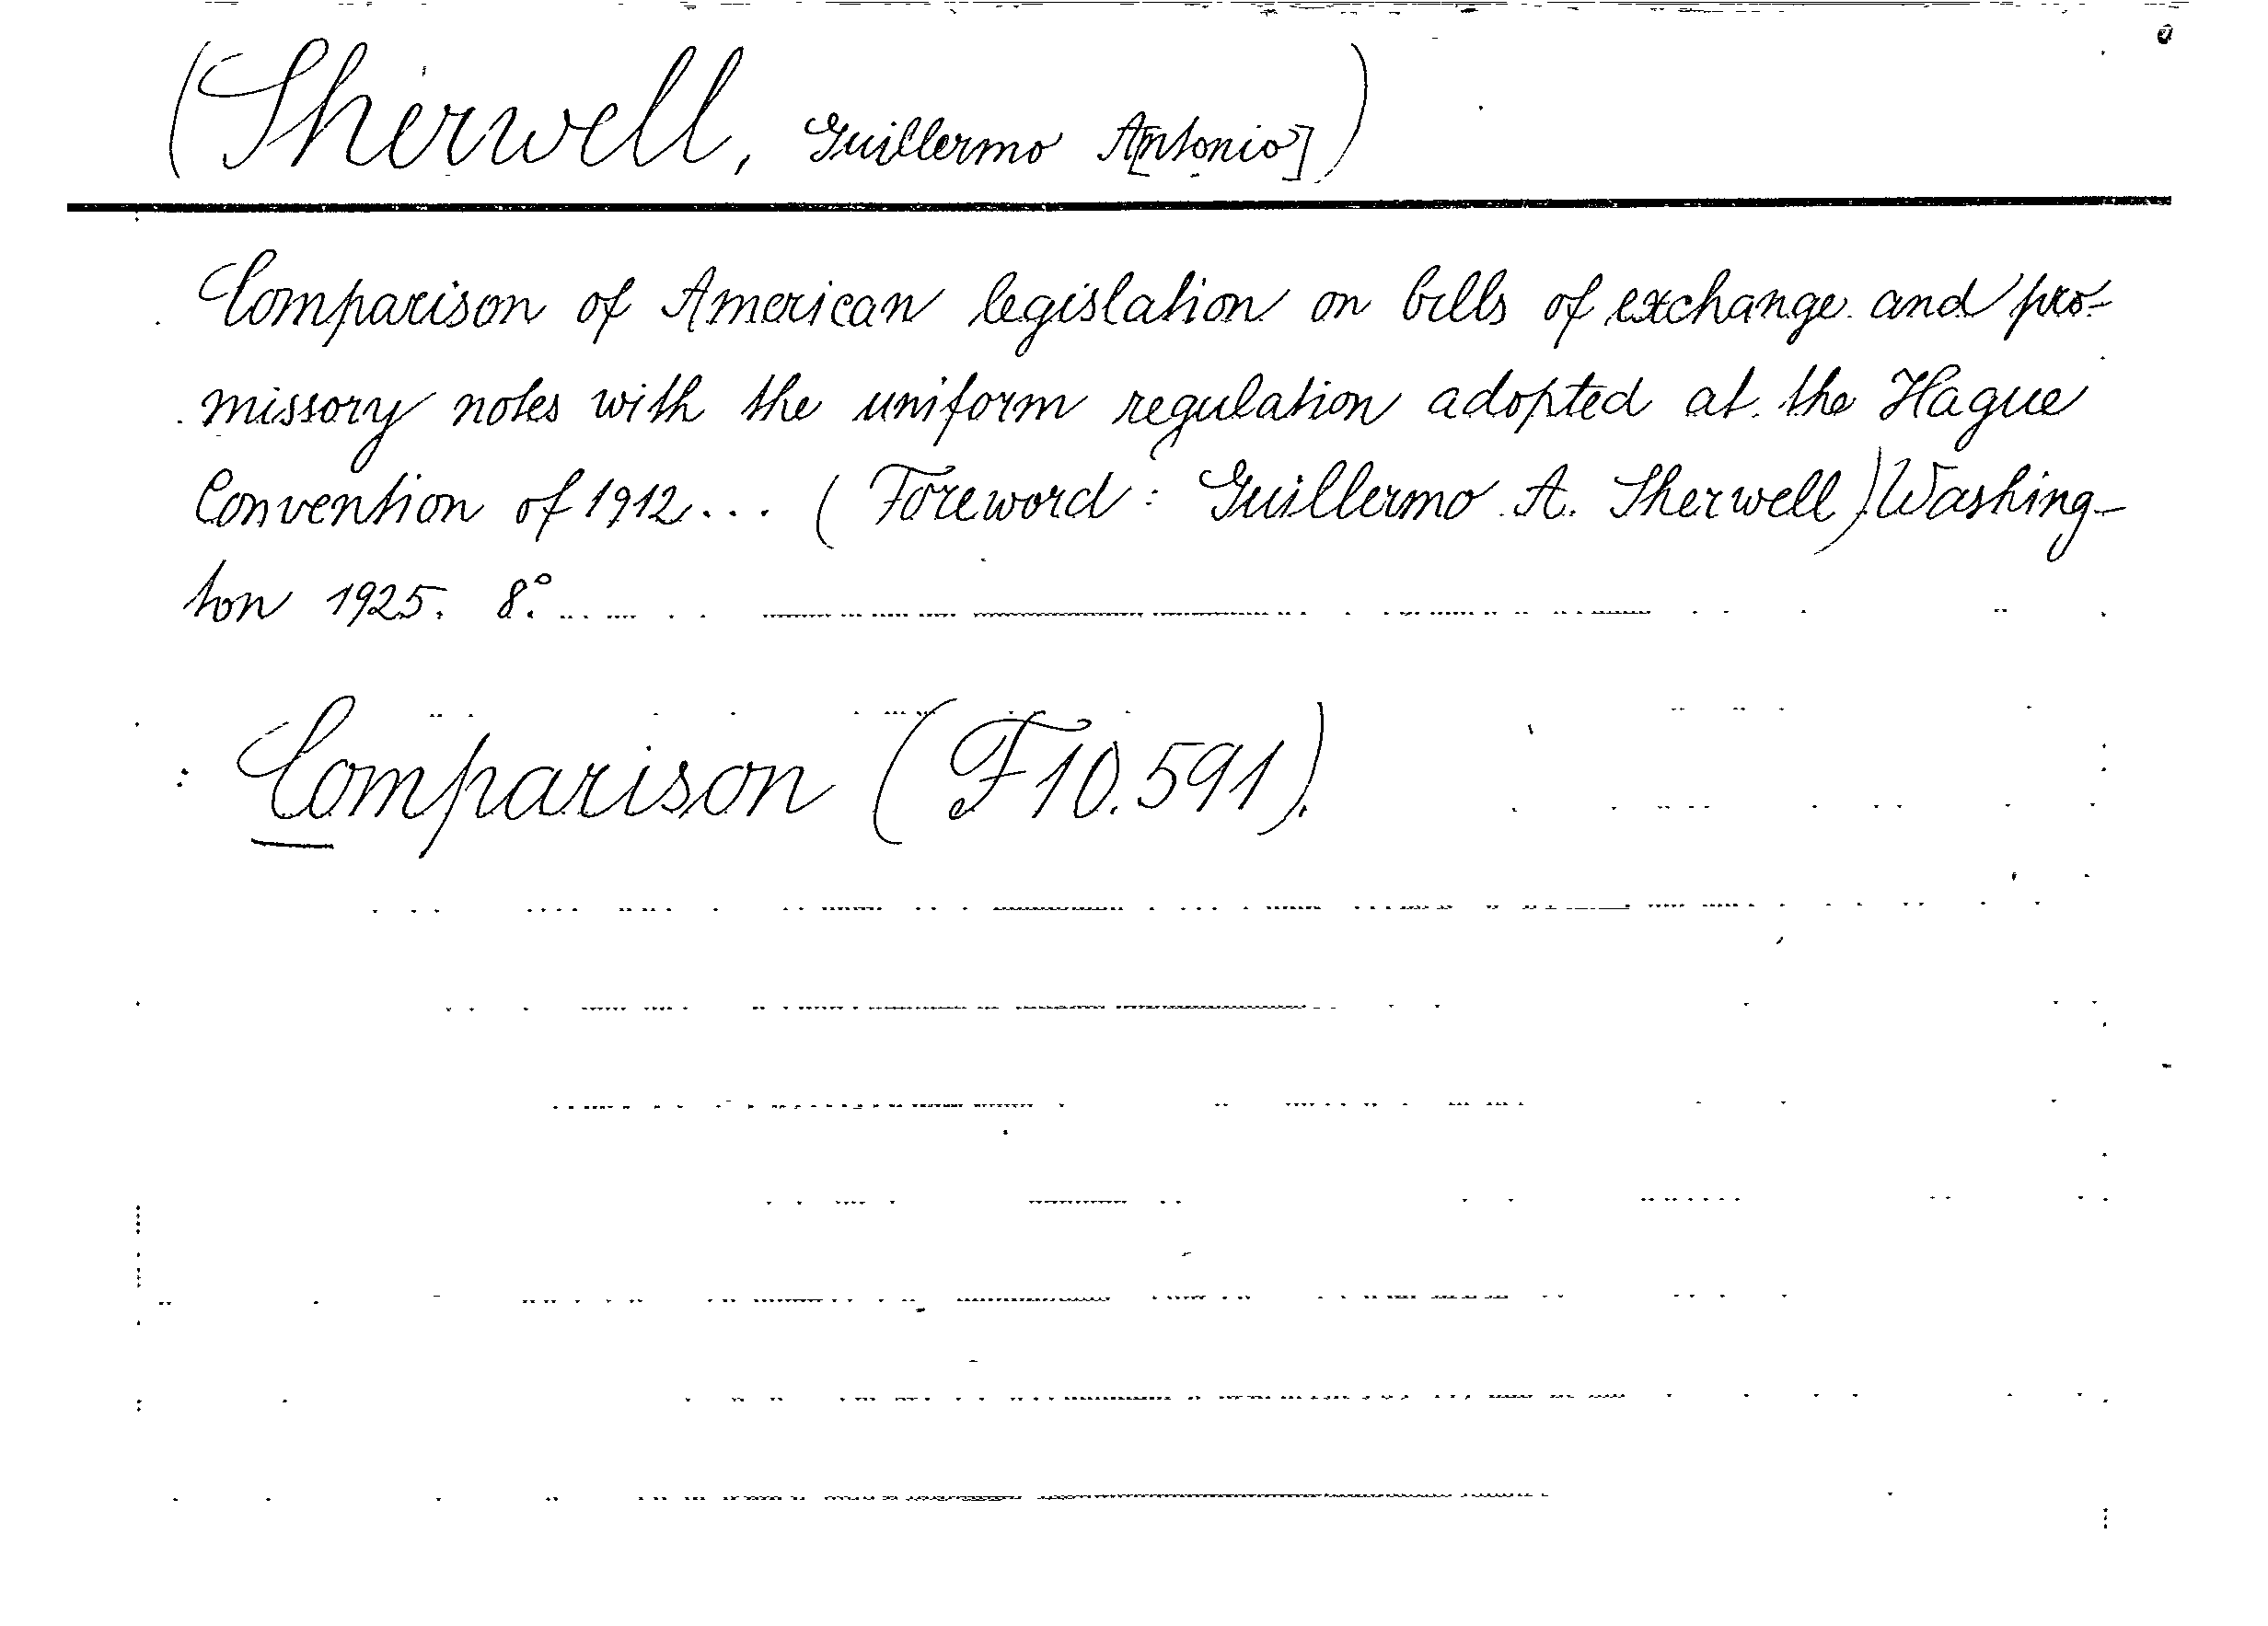 (Sherwell, Guillermo A[ntonio])
Comparison of American legislation on bills of exchange and pro-
missory notes with the uniform regulation adopted at the Hague
Convention of 1912... (Foreword: Guillermo A. Sherwell) Washing-
ton 1925. 8°.
Comparison (F10.591).